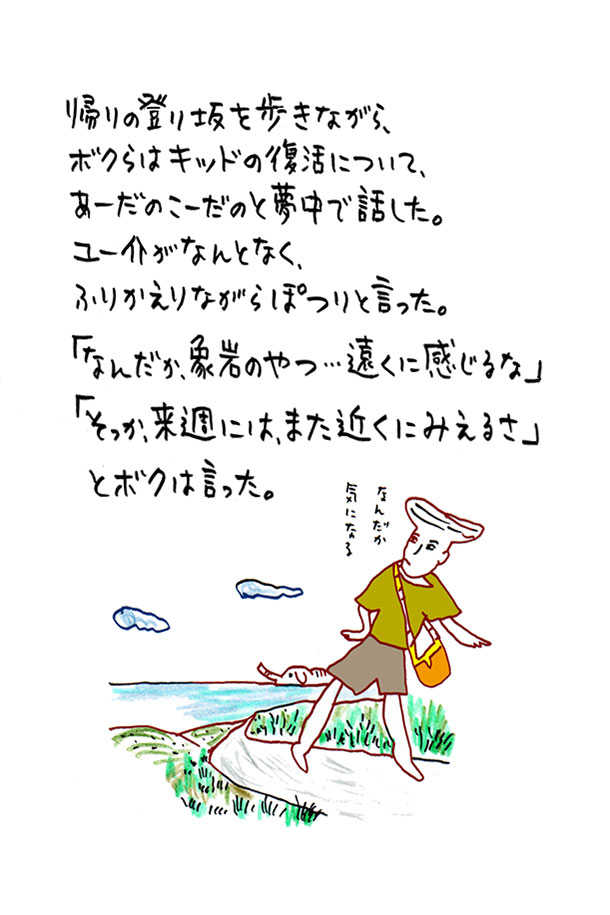 帰りの登り坂を歩きながら、
ボクらはキッドの復活について、
あーだのこーだのと夢中で話した。
ユー介がなんとなく、
ふりかえりながらぽつりと言った。
「なんだか、象岩のやつ…遠くに感じるな」
「そっか、来週には、また近くにみえるさ」
とボクは言った。
なんだか
気になる